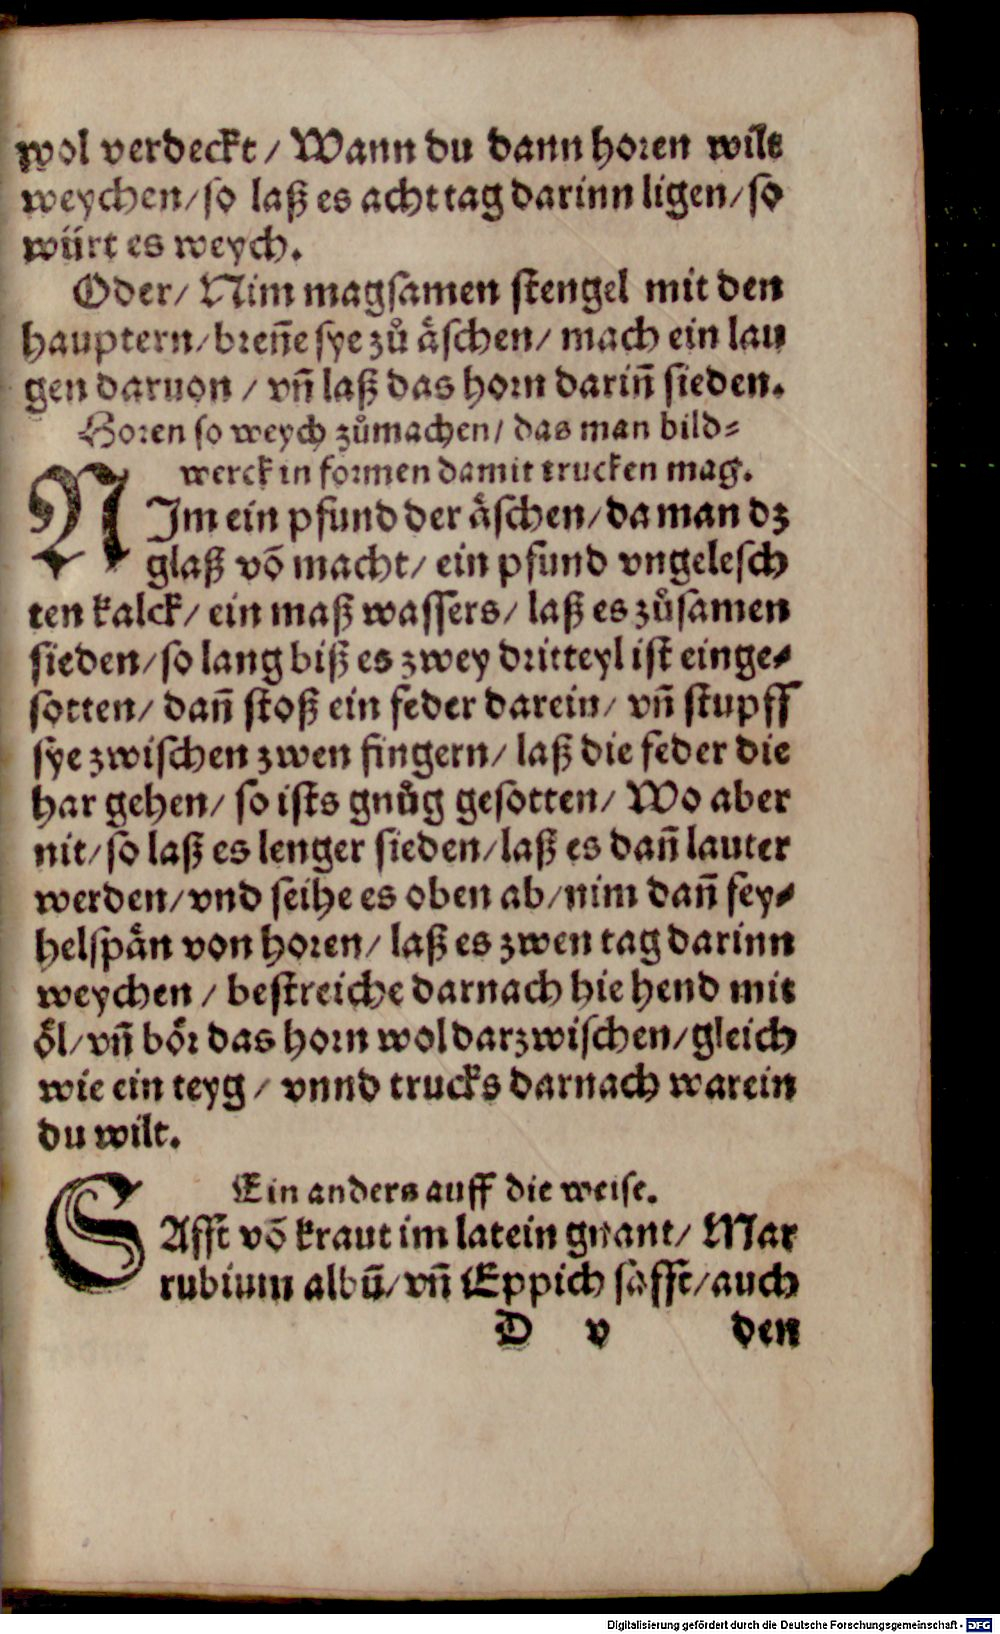 wol verdeckt / Wann du dann horen wilt
weychen / so laß es acht tag darinn ligen / so
würt es weych.
Oder / Nim magsamen stengel mit den
hauptern / breñe sye zů åschen / mach ein lau
gen daruon / vñ laß das horn dariñ sieden.
Horen so weych zůmachen / das man bild⸗
werck in formen damit trucken mag.
NIm ein pfund der åschen / da man dz
glaß võ macht / ein pfund vngelesch
ten kalck / ein maß wassers / laß es zůsamen
sieden / so lang biß es zwey dritteyl ist einge⸗
sotten / dañ stoß ein feder darein / vñ stupff
sye zwischen zwen fingern / laß die feder die
har gehen / so ists gnůg gesotten / Wo aber
nit / so laß es lenger sieden / laß es dañ lauter
werden / vnd seihe es oben ab / nim dañ fey⸗
helspån von horen / laß es zwen tag darinn
weychen / bestreiche darnach hie hend mit
ȯl / vñ bȯr das horn wol darzwischen / gleich
wie ein teyg / vnnd trucks darnach warein
du wilt.
Ein anders auff die weise.
SAfft võ kraut im latein gnant / Mar
rubium albũ / vñ Eppich safft / auch
D v den
Digitalisierung gefördert durch die Deutsche Forschungsgemeinschaft - DFG